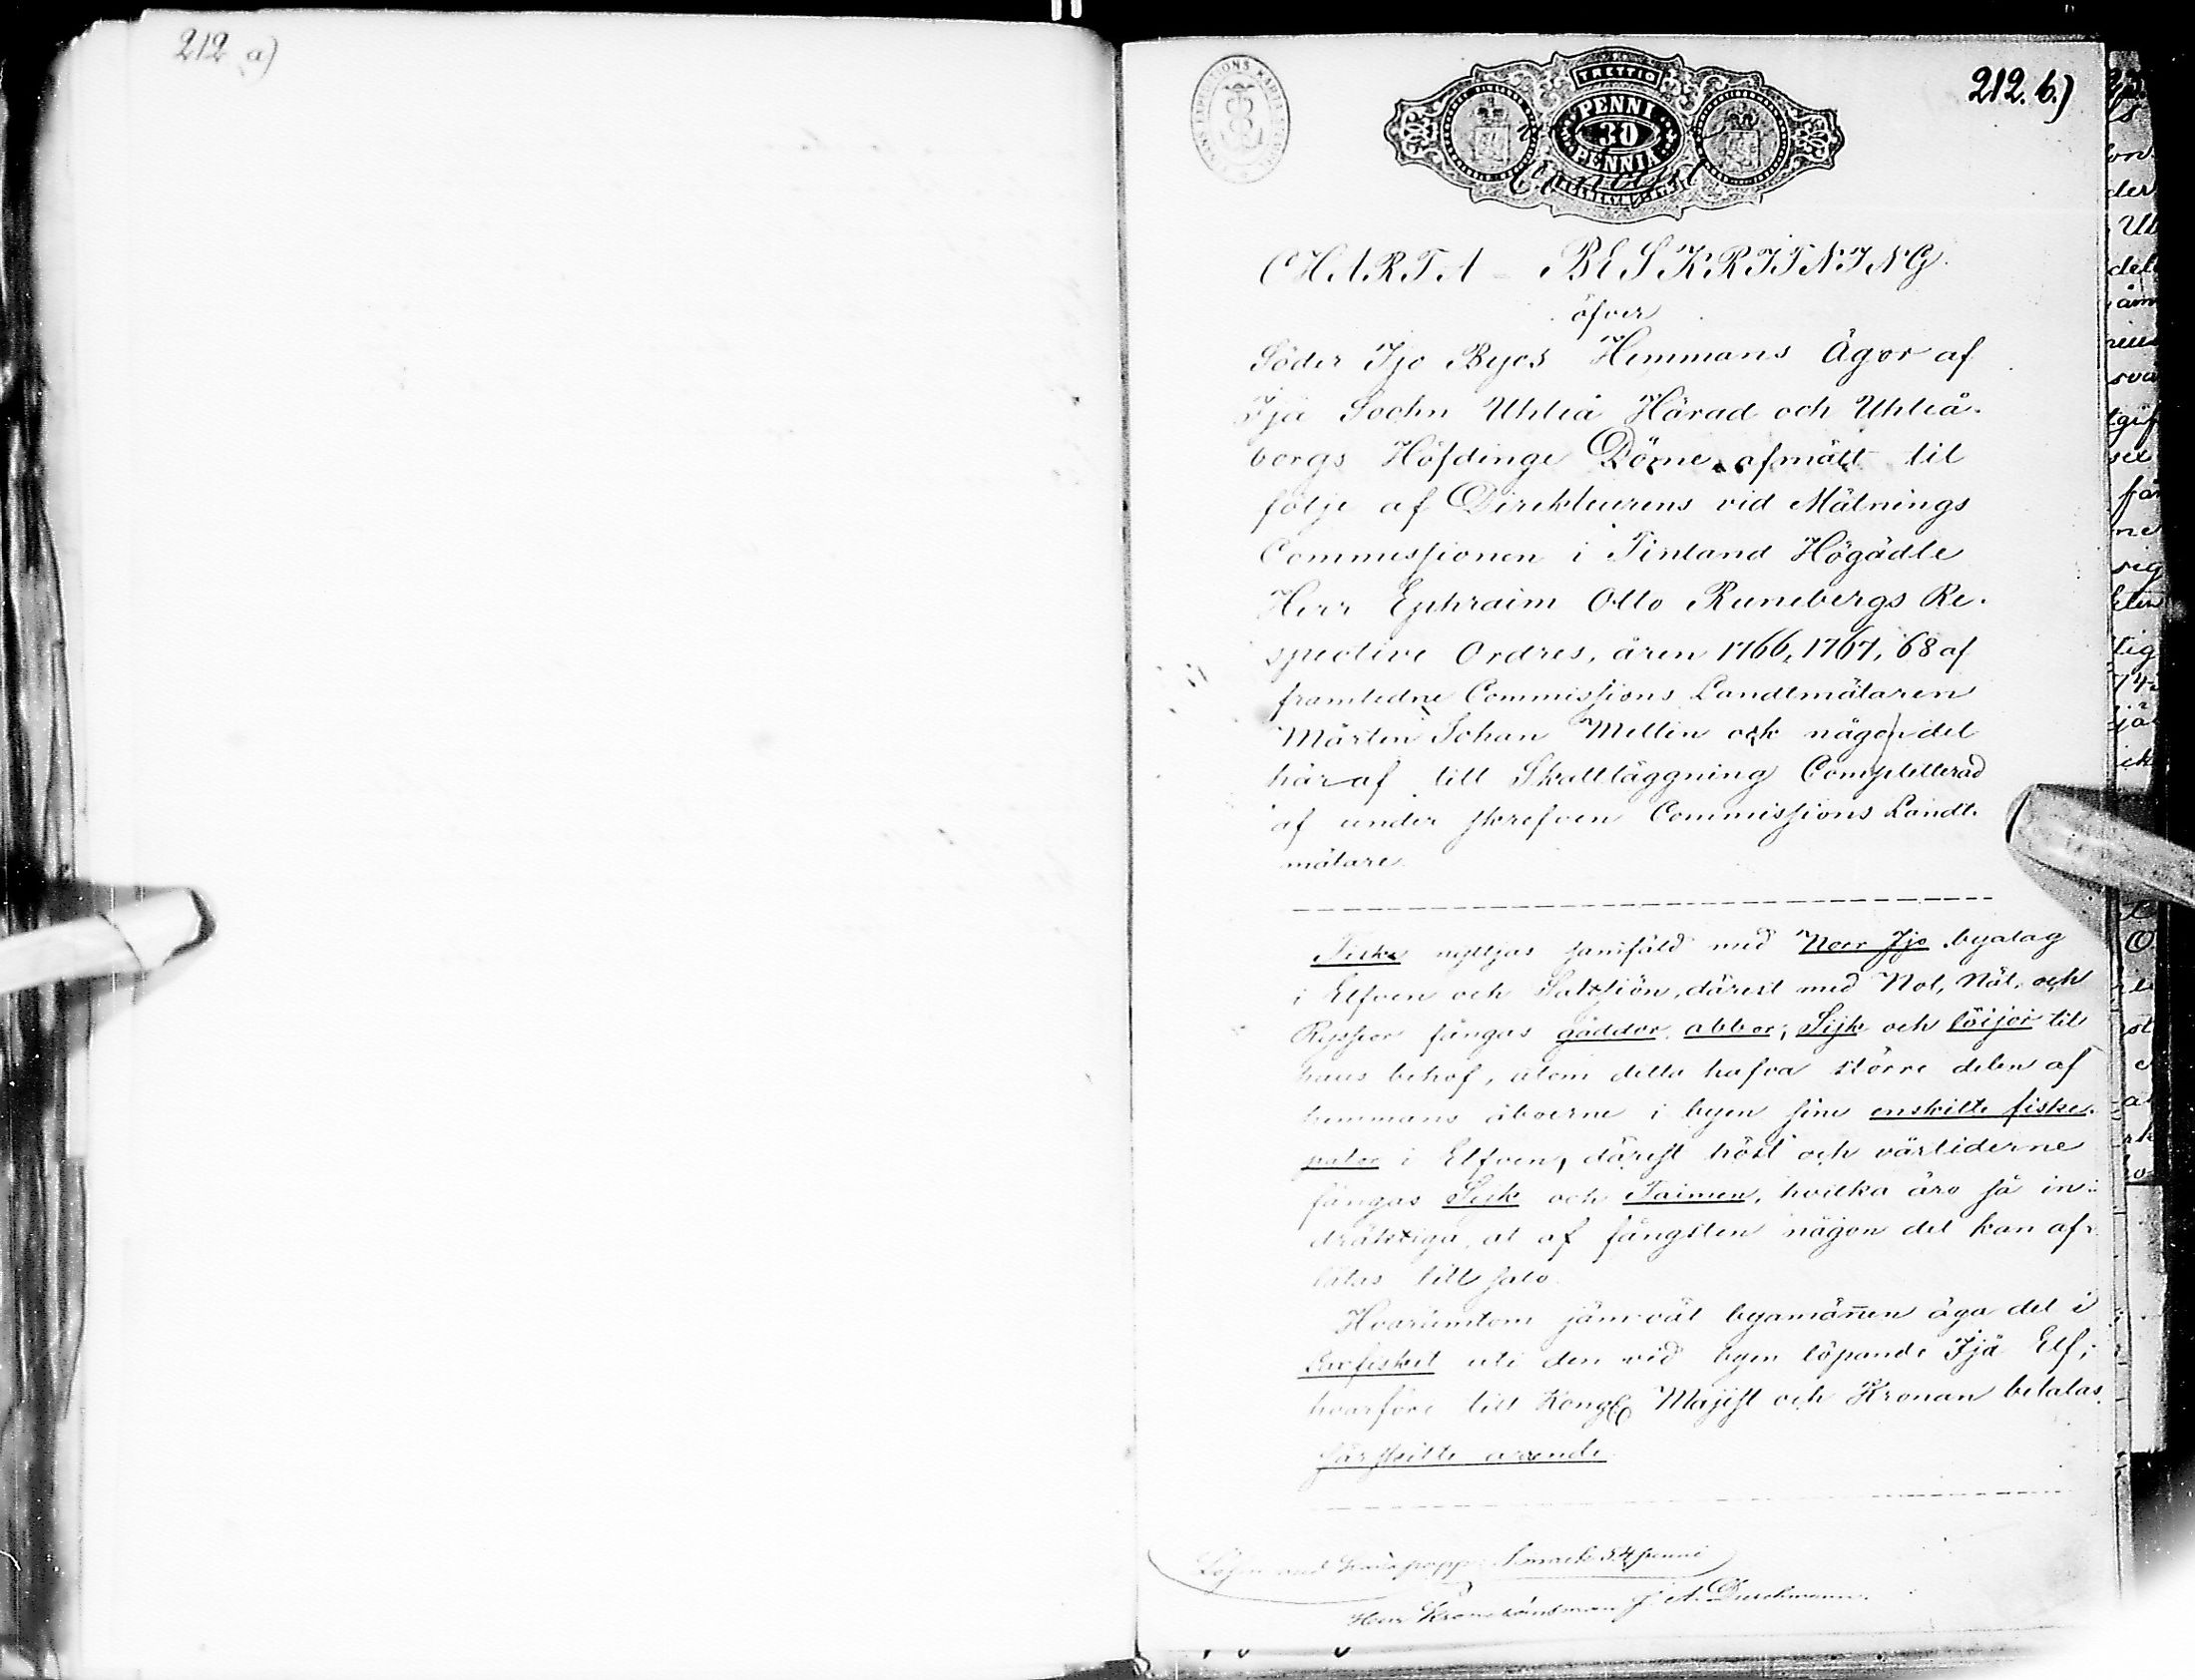 212 a)
212. b.)
TRETTIO
PENNI
30
PENNIÄ
CHARTA - BESKRIFNING.
öfver
Söder Ijo Byes Hemmans Ägor af
Ijä Sochn Uhleå Härad och Uhleå-
borgs Höfdinge Döme, afmätt til
följe af Direkteurens vid Mätnings
Commissionen i Finland Högädle
Herr Ephraim Otto Runebergs Re-
spective Ordres, åren 1766, 1767, 68 af
framledne Commissions Landtmätaren
Mårten Johan Mellin och någon del
här af till Skattläggning Completterad
af under skrefven Commissions Landt-
mätare.
Fiske nyttjas samfäld med Norr Ijo byalag
i Elfven och Saltsiön, därest med Not, Nät, och
Ryssjor fångas gäddor, abbor, Sijk och löijor till
huus behof, utom detta hafva större delen af
hemmans åboerne i byen sine enskilte fiske-
pator i Elfven, därest höst och vårtiderne
fångas Sijk och Taimen, hvilka äro så in-
dräktiga, at af fångsten någon del kan af-
låtas till salo.
Hvarumtom jämväl byamännen äga del i
Laxfisket uti den vid byen löpande Ijä Elf;
hvarföre till Kongl Majest och Kronan betalas
särskillte arrende.
Lösen med 5 mark 54 penni
Herr Kronolänsman J. A. Durchmann.